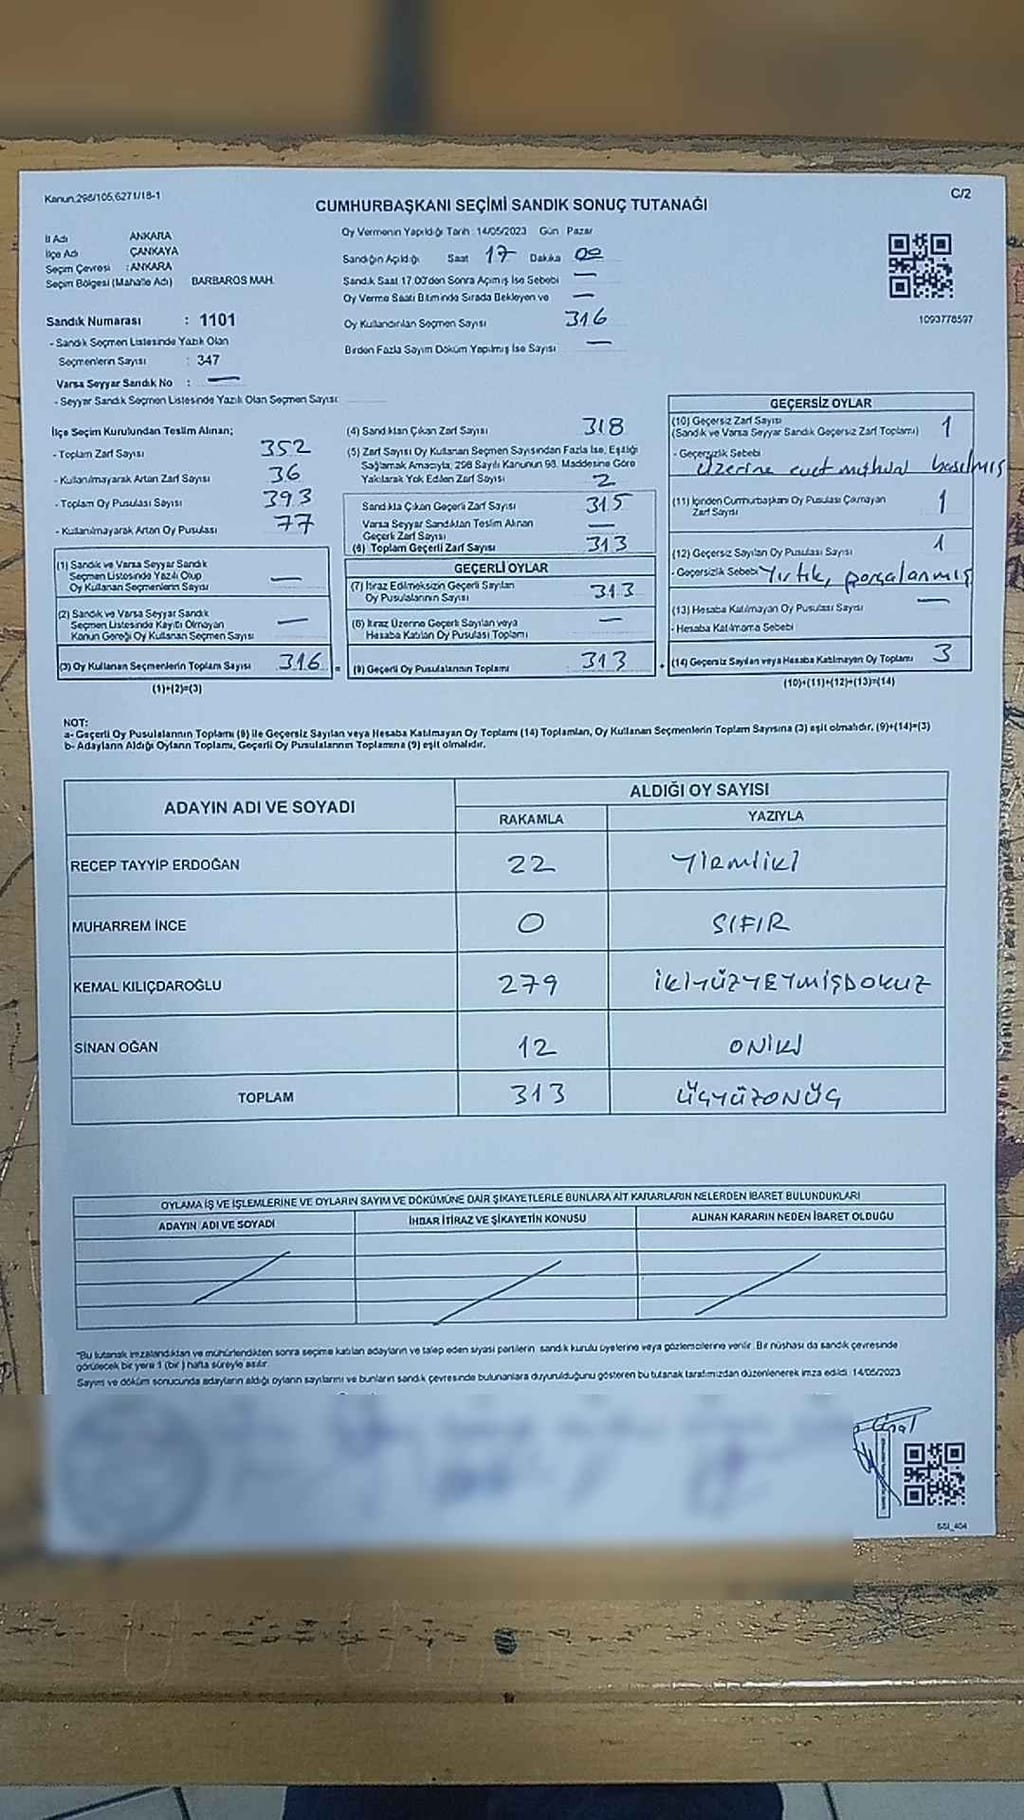 Kanun,298/105,6271/18-1
C/2
CUMHURBAŞKANI SEÇİMİ SANDIK SONUÇ TUTANAĞI
İl Adı ANKARA
İlçe Adı ÇANKAYA
Seçim Çevresi : ANKARA
Seçim Bölgesi (Mahalle Adı) BARBAROS MAH.
Sandık Numarası : 1101
- Sandık Seçmen Listesinde Yazılı Olan
Seçmenlerin Sayısı : 347
Varsa Seyyar Sandık No : —
- Seyyar Sandık Seçmen Listesinde Yazılı Olan Seçmen Sayısı:
Oy Vermenin Yapıldığı Tarih : 14/05/2023 Gün : Pazar
Sandığın Açıldığı Saat 17 Dakika 00
Sandık Saat 17.00'den Sonra Açılmış İse Sebebi —
Oy Verme Saati Bitiminde Sırada Bekleyen ve —
Oy Kullandırılan Seçmen Sayısı 316
Birden Fazla Sayım Döküm Yapılmış İse Sayısı —
1093778597
İlçe Seçim Kurulundan Teslim Alınan;
- Toplam Zarf Sayısı 352
- Kullanılmayarak Artan Zarf Sayısı 36
- Toplam Oy Pusulası Sayısı 393
- Kullanılmayarak Artan Oy Pusulası 77
(1) Sandık ve Varsa Seyyar Sandık
Seçmen Listesinde Yazılı Olup
Oy Kullanan Seçmenlerin Sayısı —
(2) Sandık ve Varsa Seyyar Sandık
Seçmen Listesinde Kayıtlı Olmayan
Kanun Gereği Oy Kullanan Seçmen Sayısı —
(3) Oy Kullanan Seçmenlerin Toplam Sayısı 316 =
(1)+(2)=(3)
(4) Sandıktan Çıkan Zarf Sayısı 318
(5) Zarf Sayısı Oy Kullanan Seçmen Sayısından Fazla İse, Eşitliği
Sağlamak Amacıyla, 298 Sayılı Kanunun 98. Maddesine Göre
Yakılarak Yok Edilen Zarf Sayısı 2
Sandıkta Çıkan Geçerli Zarf Sayısı 315
Varsa Seyyar Sandıktan Teslim Alınan
Geçerli Zarf Sayısı —
(6) Toplam Geçerli Zarf Sayısı 313
GEÇERLİ OYLAR
(7) İtiraz Edilmeksizin Geçerli Sayılan
Oy Pusulalarının Sayısı 313
(8) İtiraz Üzerine Geçerli Sayılan veya
Hesaba Katılan Oy Pusulası Toplamı —
(9) Geçerli Oy Pusulalarının Toplamı 313 +
GEÇERSİZ OYLAR
(10) Geçersiz Zarf Sayısı
(Sandık ve Varsa Seyyar Sandık Geçersiz Zarf Toplamı) 1
- Geçersizlik Sebebi
üzerine evet mührü basılmış
(11) İçinden Cumhurbaşkanı Oy Pusulası Çıkmayan
Zarf Sayısı 1
(12) Geçersiz Sayılan Oy Pusulası Sayısı 1
- Geçersizlik Sebebi Yırtık, parçalanmış
(13) Hesaba Katılmayan Oy Pusulası Sayısı —
- Hesaba Katılmama Sebebi
(14) Geçersiz Sayılan veya Hesaba Katılmayan Oy Toplamı 3
(10)+(11)+(12)+(13)=(14)
NOT:
a- Geçerli Oy Pusulalarının Toplamı (9) ile Geçersiz Sayılan veya Hesaba Katılmayan Oy Toplamı (14) Toplamları, Oy Kullanan Seçmenlerin Toplam Sayısına (3) eşit olmalıdır. (9)+(14)=(3)
b- Adayların Aldığı Oyların Toplamı, Geçerli Oy Pusulalarının Toplamına (9) eşit olmalıdır.
ADAYIN ADI VE SOYADI
ALDIĞI OY SAYISI
RAKAMLA YAZIYLA
RECEP TAYYİP ERDOĞAN 22 YİRMİİKİ
MUHARREM İNCE 0 SIFIR
KEMAL KILIÇDAROĞLU 279 İKİYÜZYEYMİŞDOKUZ
SİNAN OĞAN 12 ONİKİ
TOPLAM 313 ÜÇYÜZONÜÇ
OYLAMA İŞ VE İŞLEMLERİNE VE OYLARIN SAYIM VE DÖKÜMÜNE DAİR ŞİKAYETLERLE BUNLARA AİT KARARLARIN NELERDEN İBARET BULUNDUKLARI
ADAYIN ADI VE SOYADI İHBAR İTİRAZ VE ŞİKAYETİN KONUSU ALINAN KARARIN NEDEN İBARET OLDUĞU
*Bu tutanak imzalandıktan ve mühürlendikten sonra seçime katılan adayların ve talep eden siyasi partilerin sandık kurulu üyelerine veya gözlemcilerine verilir. Bir nüshası da sandık çevresinde
görülecek bir yere 1 (bir) hafta süreyle asılır.
Sayım ve döküm sonucunda adayların aldığı oyların sayılarını ve bunların sandık çevresinde bulunanlara duyurulduğunu gösteren bu tutanak tarafımızdan düzenlenerek imza edildi. 14/05/2023